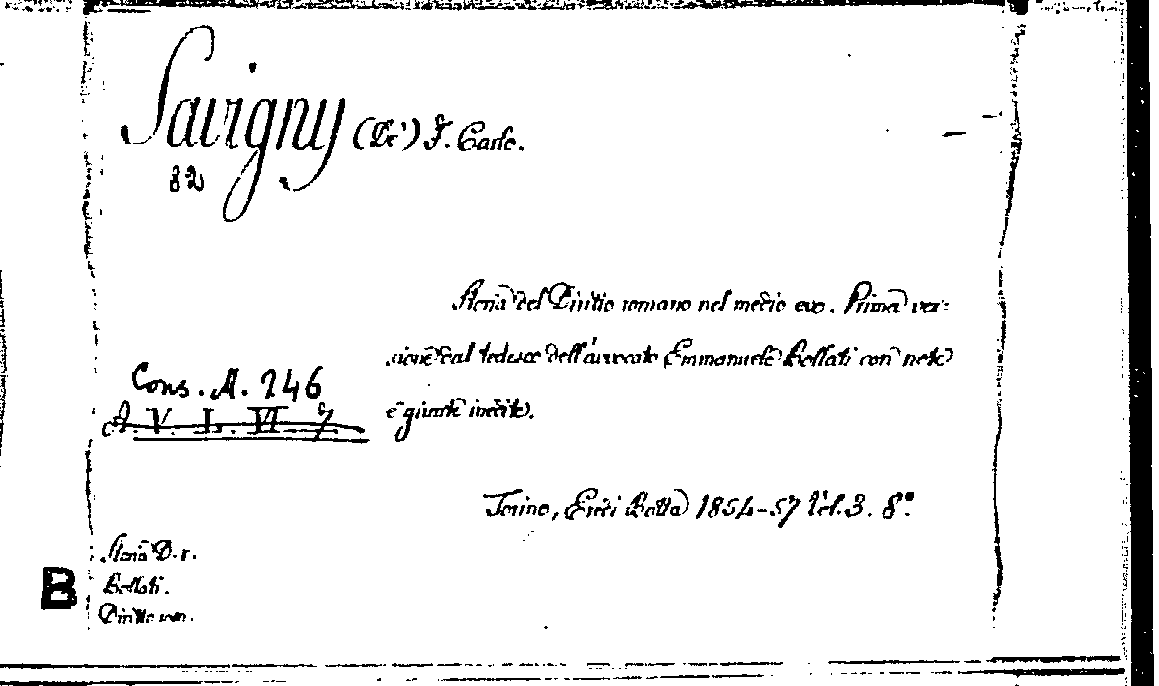 Savigny (De) F. Carlo.
82
Storia del Diritto romano nel medio evo. Prima ver=
sione dal tedesco dell'avvocato Emmanuele Bollati con note
Cons. A. 246
e giunte inedite.
A. V. L. VI 7
Torino, Eredi Botta 1854-57 Vol. 3. 8°.
Storia D. r.
Bollati.
B
Diritto rom.